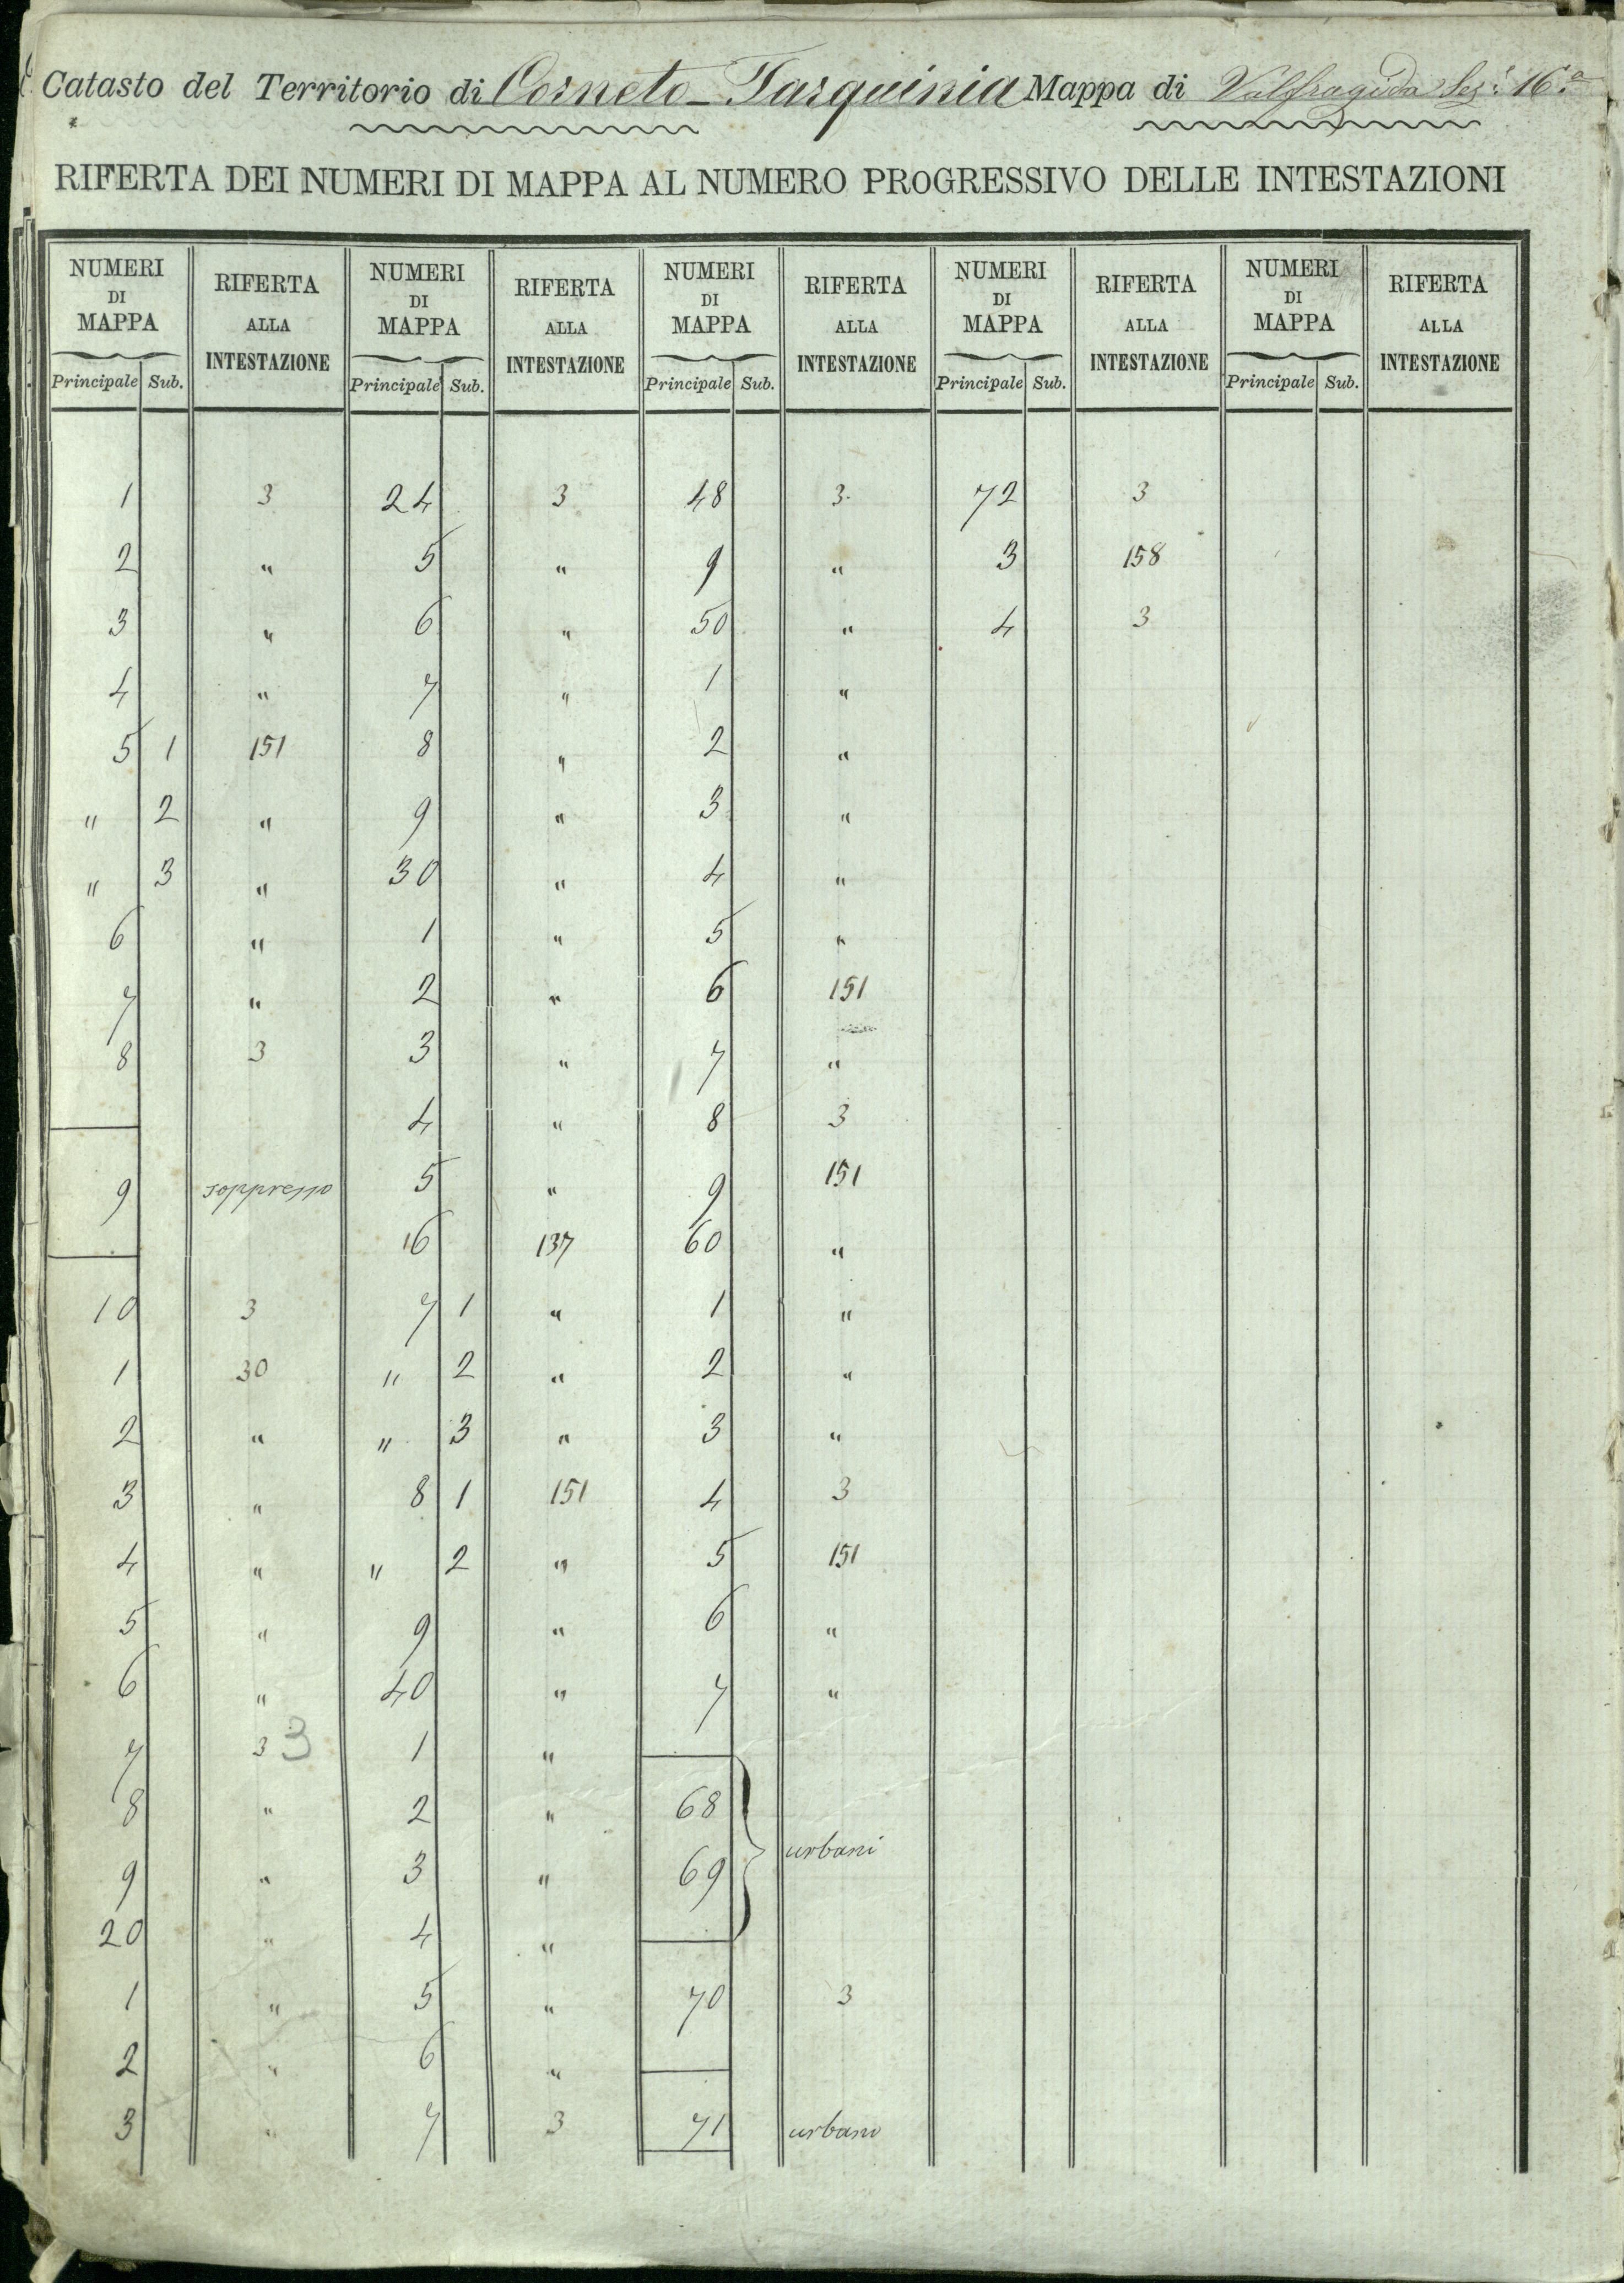 Catasto del Territorio di Corneto-Tarquinia Mappa di Valfragida Sez. 16.a
RIFERTA DEI NUMERI DI MAPPA AL NUMERO PROGRESSIVO DELLE INTESTAZIONI
NUMERI DI MAPPA RIFERTA ALLA INTESTAZIONE NUMERI DI MAPPA RIFERTA ALLA INTESTAZIONE NUMERI DI MAPPA RIFERTA ALLA INTESTAZIONE NUMERI DI MAPPA RIFERTA ALLA INTESTAZIONE NUMERI DI MAPPA RIFERTA ALLA INTESTAZIONE
Principale Sub. Principale Sub. Principale Sub. Principale Sub. Principale Sub.
1 3 24 3 48 3 72 3
2 " 5 " 9 " 3 158
3 " 6 " 50 " 4 3
4 " 7 " 1 "
5 1 151 8 " 2 "
" 2 " 9 " 3 "
" 3 " 30 " 4 "
6 " 1 " 5 "
7 " 2 " 6 151
8 3 3 " 7 "
4 " 8 3
9 soppresso 5 " 9 151
16 137 60 "
10 3 7 1 " 1 "
1 30 " 2 " 2 "
2 " " 3 " 3 "
3 " 8 1 151 4 3
4 " " 2 " 5 151
5 " 9 " 6 "
6 " 40 " 7 "
7 3 3 1 "
8 " 2 " 68
urbani
9 " 3 " 69
20 " 4 "
1 " 5 " 70 3
2 " 6 "
3 " 7 3 71 urbano